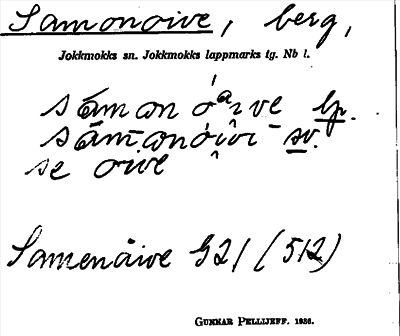 Samonoive, berg,
Jokkmokks sn. Jokkmokks lappmarks tg. Nb l.
sámon óᵃi̯ve lp.
sām̄.onói̯vi sv.
se oive
Samenåive G21 (512)
GUNNAR PELLIJEFF. 1936.